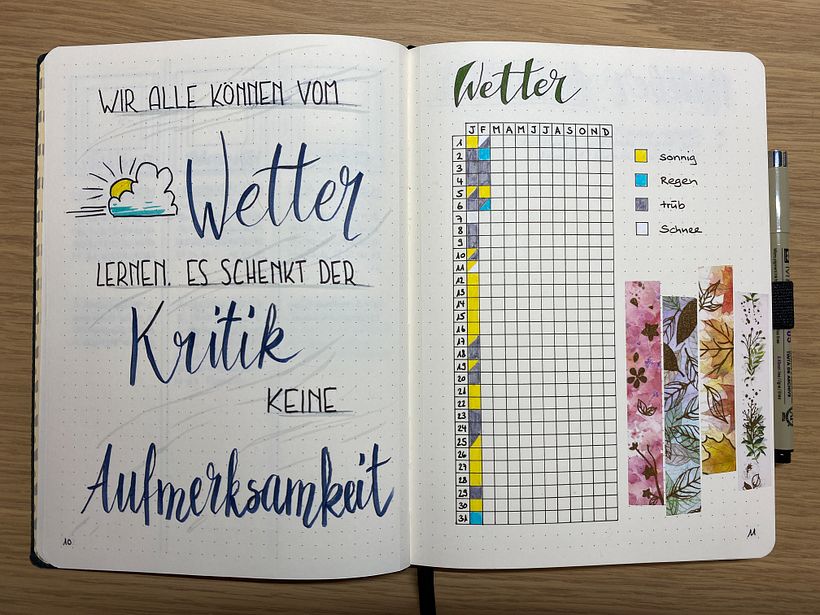 WIR ALLE KÖNNEN VOM
Wetter
LERNEN. ES SCHENKT DER
Kritik
KEINE
Aufmerksamkeit
10
Wetter
J F M A M J J A S O N D
1
2
3
4
5
6
7
8
9
10
11
12
13
14
15
16
17
18
19
20
21
22
23
24
25
26
27
28
29
30
31
sonnig
Regen
trüb
Schnee
11